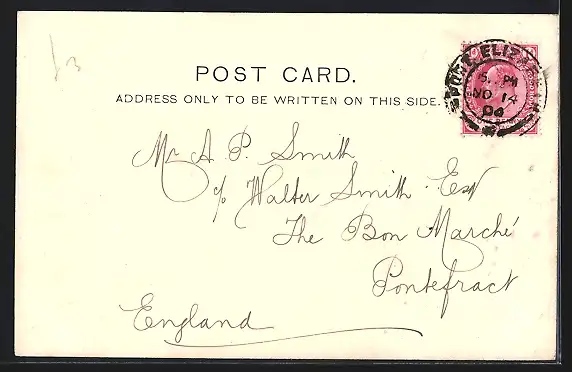 POST CARD.
ADDRESS ONLY TO BE WRITTEN ON THIS SIDE.
PORT ELIZABETH
5. PM
NO 14
04
Mr A. P. Smith
c/o Walter Smith Esq
The Bon Marché
Pontefract
England